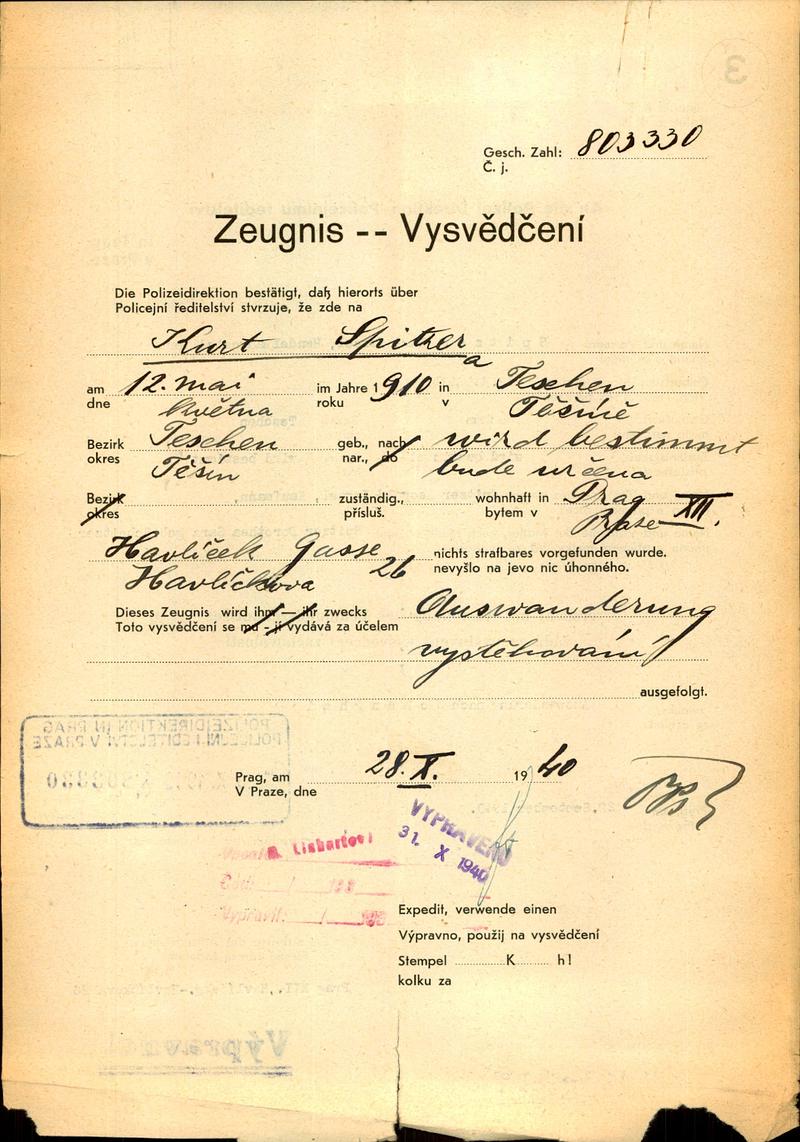 3
Gesch. Zahl: 803330
Č. j.
Zeugnis -- Vysvědčení
Die Polizeidirektion bestätigt, daß hierorts über
Policejní ředitelství stvrzuje, že zde na
Kurt Spitzer
a
am 12. mai im Jahre 1910 in Teschen
dne května roku v Těšíně
Bezirk Teschen geb., nach wird bestimmt
okres Těšín nar., do bude určena
Bezirk zuständig., wohnhaft in Prag XII.
okres přísluš. bytem v Praze
Havlíček Gasse nichts strafbares vorgefunden wurde.
Havlíčkova 26 nevyšlo na jevo nic úhonného.
Dieses Zeugnis wird ihm — ihr zwecks Auswanderung
Toto vysvědčení se mu - jí vydává za účelem
vystěhování
ausgefolgt.
POLIZEIDIREKTION IN PRAG
POLICEJNÍ ŘEDITELSTVÍ V PRAZE
Prag, am 28. X. 1940
V Praze, dne
VYPRAVENO
31. X 1940
Lishartová
Vypravil:
Expedit, verwende einen
Výpravno, použij na vysvědčení
Stempel K h!
kolku za